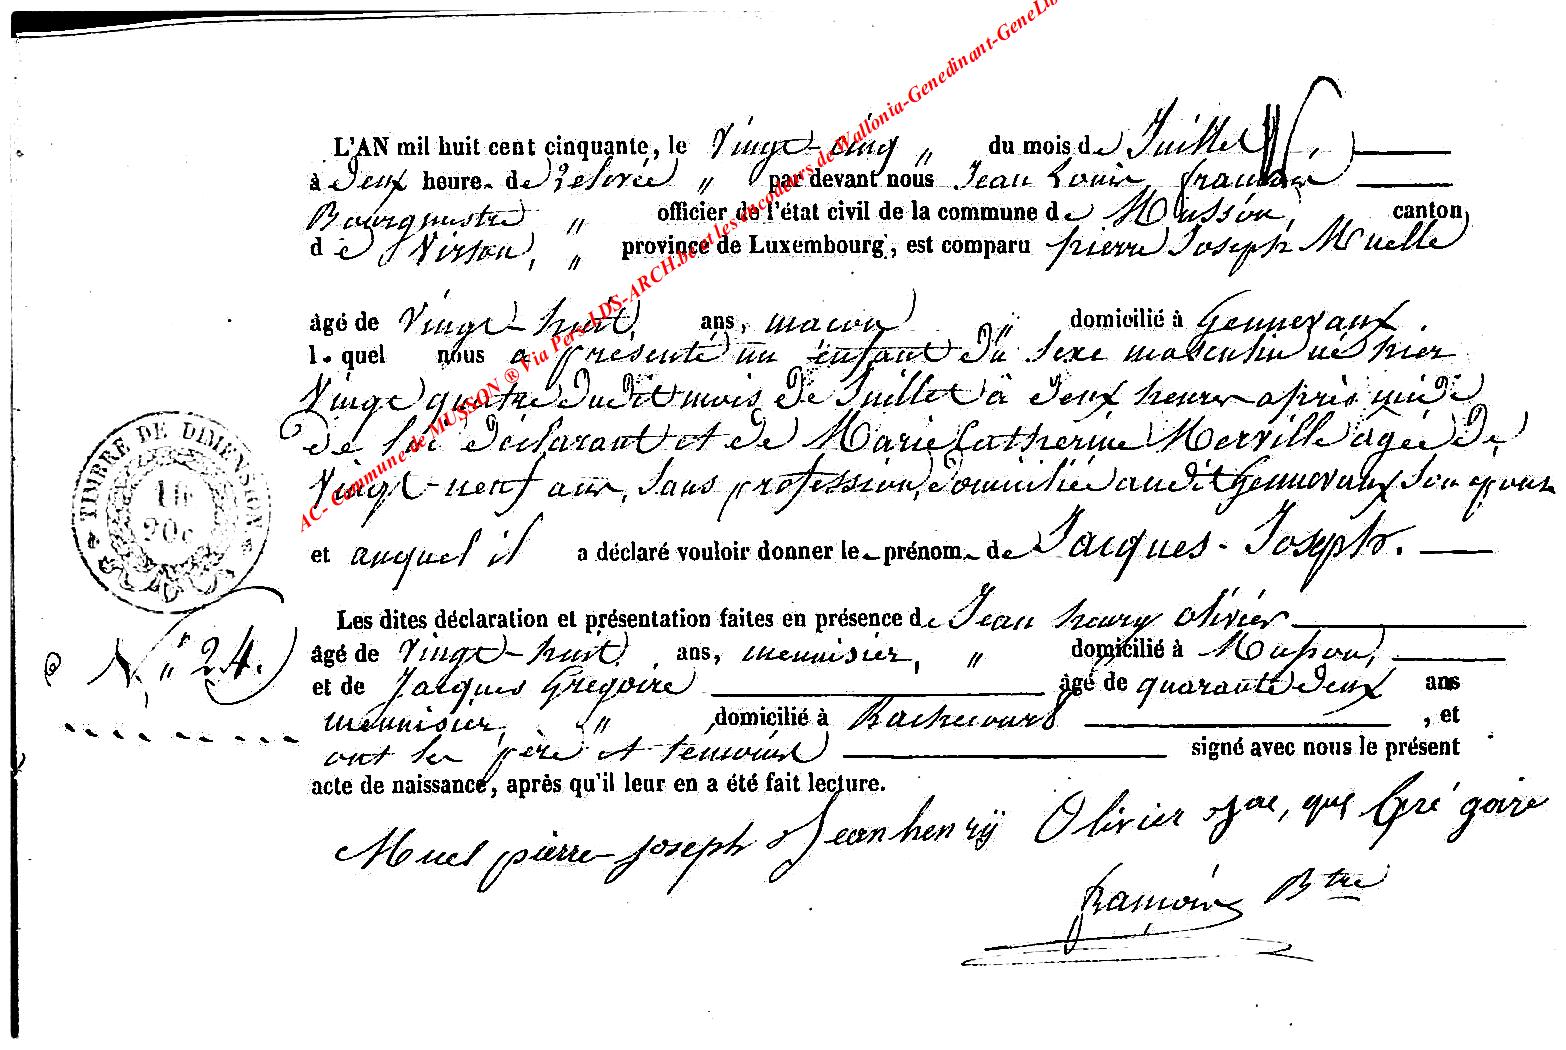 L'AN mil huit cent cinquante, le Vingt-cinq „ du mois de Juillet
à deux heure- de relevée „ par devant nous Jean Louis françois
Bourgmestre „ officier de l'état civil de la commune de Musson, canton
de Virton, „ province de Luxembourg, est comparu pierre Joseph Muelle
âgé de Vingt-huit, ans, macon „ domicilié à Gennevaux.
l-quel nous a présenté un enfant du sexe masculin né hier
Vingt quatre dudit mois de Juillet à deux heures après midi
de lui déclarant et de Marie Catherine Merville agée de
Vingt-neuf ans, sans profession, domiciliée audit Gennevaux son épouse
TIMBRE DE DIMENSION
20c
et auquel il a déclaré vouloir donner le-prénom- de Jacques-Joseph.
Les dites déclaration et présentation faites en présence de Jean henry olivier
N. „ 24.
âgé de Vingt-huit ans, menuisier, „ domicilié à Musson,
et de Jacques Grégoire âgé de quarante deux ans
menuisier, „ domicilié à Rachecourt , et
ont les père et temoins signé avec nous le présent
acte de naissance, après qu'il leur en a été fait lecture.
Muel pierre-joseph Jean henry Olivier Jac, que Gré goire
françois Btre
AC- Commune de MUSSON ® Via Pers-LDS-ARCH.be et les encodeurs de Wallonia-Genedinant-GeneLi